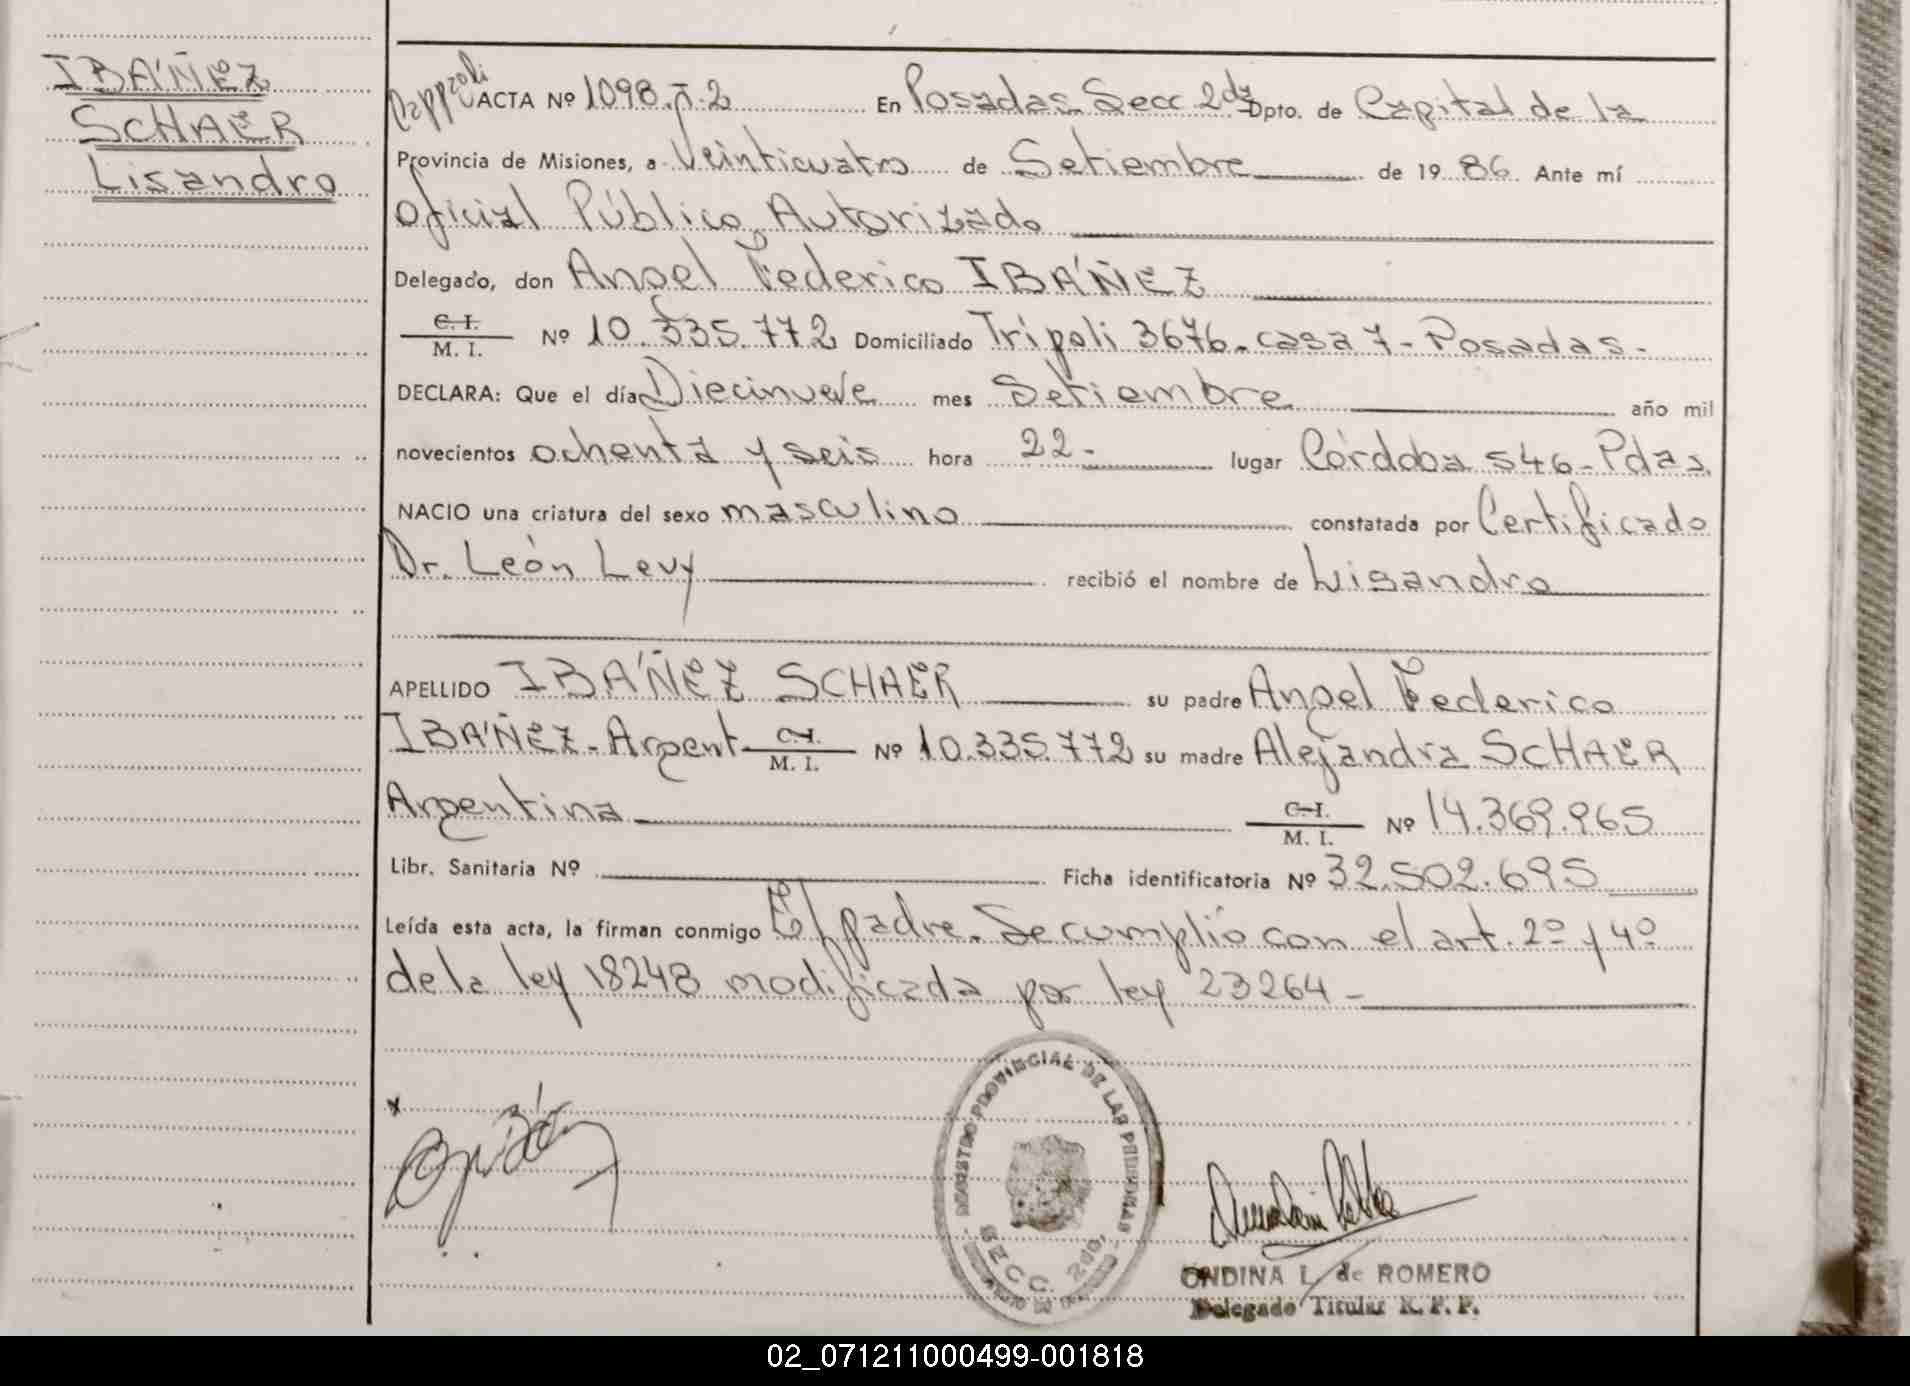 IBÁÑEZ
SCHAER
Lisandro
ACTA Nº 1098. T. 2 En Posadas Secc 2da Dpto. de Capital de la
Provincia de Misiones, a Veinticuatro de Setiembre de 19 86. Ante mí
Oficial Público Autorizado
Delegado, don Angel Federico IBÁÑEZ
C. I.
M. I. Nº 10.335.772 Domiciliado Trípoli 3676. casa 7 - Posadas -
DECLARA: Que el día Diecinueve mes Setiembre año mil
novecientos ochenta y seis hora 22 - lugar Córdoba 546 - Pdas.
NACIO una criatura del sexo masculino constatada por Certificado
Dr. León Levy recibió el nombre de Lisandro
APELLIDO IBÁÑEZ SCHAER su padre Angel Federico
IBÁÑEZ - Argent. C. I.
M. I. Nº 10.335.772 su madre Alejandra SCHAER
Argentina C. I.
M. I. Nº 14.369.965
Libr. Sanitaria Nº Ficha identificatoria Nº 32.502.695
Leída esta acta, la firman conmigo El padre. Se cumplió con el art. 2º y 4º
de la ley 18248 modificada por ley 23264 -
REGISTRO PROVINCIAL DE LAS PERSONAS
SECC. 2da.
ONDINA L. de ROMERO
Delegado Titular R. P. P.
02_071211000499-001818